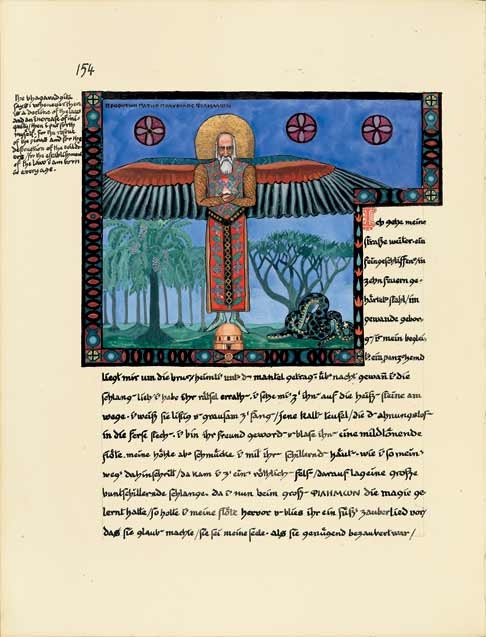 154
The bhagavadgita
says: whenever there
is a decline of the law
and an increase of ini-
quity / then i put forth
myself. for the rescue
of the pious and for the
destruction of the evildo-
ers / for the establishment
of the law i am born
in every age.
ΠΡΟΦΗΤΩΝ ΠΑΤΗΡ ΠΟΛΥΦΙΛΟΣ ΦΙΛΗΜΩΝ
Ich gehe meine
straße weiter. ein
feingeschliffen/in
zehn feuern ge-
härtet stahl/im
gewande gebor-
g/ist mein beglei-
ein panzerhemd
liegt mir um die brust/heimli unt d mantel getrag. üb nacht gewan i die
schlang lieb/i habe ihr rätsel errath. i setze mi z' ihn auf die heiß steine am
wege. i weiß sie listig u grausam z' fang/jene kalt teufel/die d ahnungslos
in die ferse stech. i bin ihr freund geword u blase ihn eine mildtönende
flöte. meine höhle ab schmücke i mit ihr schillernd häut. wie i so mein
weg dahinschritt/da kam i z' ein röthlich fels/darauf lag eine große
buntschillernde schlange. da i nun beim groß ΦΙΛΗΜΩΝ die magie ge-
lernt hatte/so holte i meine flöte hervor u blies ihr ein süß zauberlied vor/
das sie glaub machte/sie sei meine seele. als sie genügend bezaubert war/